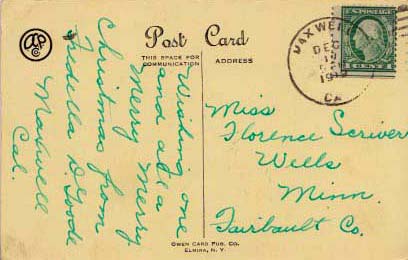 Post Card
THIS SPACE FOR
COMMUNICATION
ADDRESS
U.S. POSTAGE
1 CENT 1
MAXWELL
DEC
CAL
Wishing one
and all a
Merry Merry
Christmas from
D. Goode
Maxwell
Cal.
Miss
Florence Scriver
Wells
Minn.
Fairbault Co.
OWEN CARD PUB. CO.
ELMIRA, N. Y.